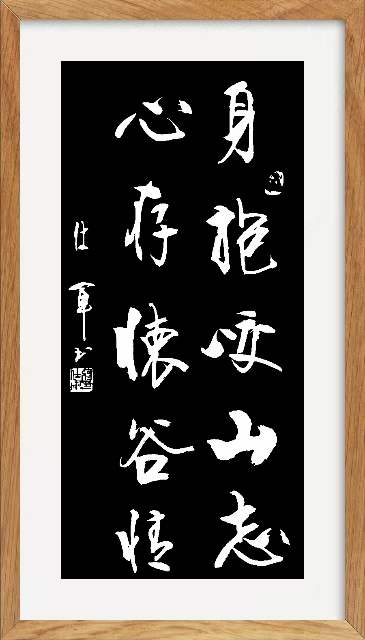 身抱咬山志
心存怀谷情
仕军书